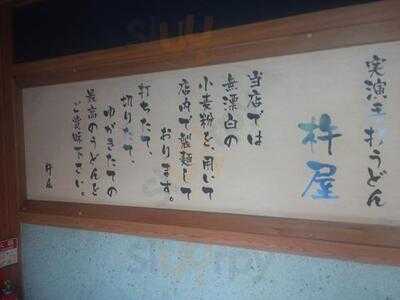 実演手打うどん
杵屋
当店では
無漂白の
小麦粉を、用いて
店内で製麺して
おります。
打ちたて、
切りたて、
ゆがきたての
最高のうどんを
ご賞味下さい。
杵屋